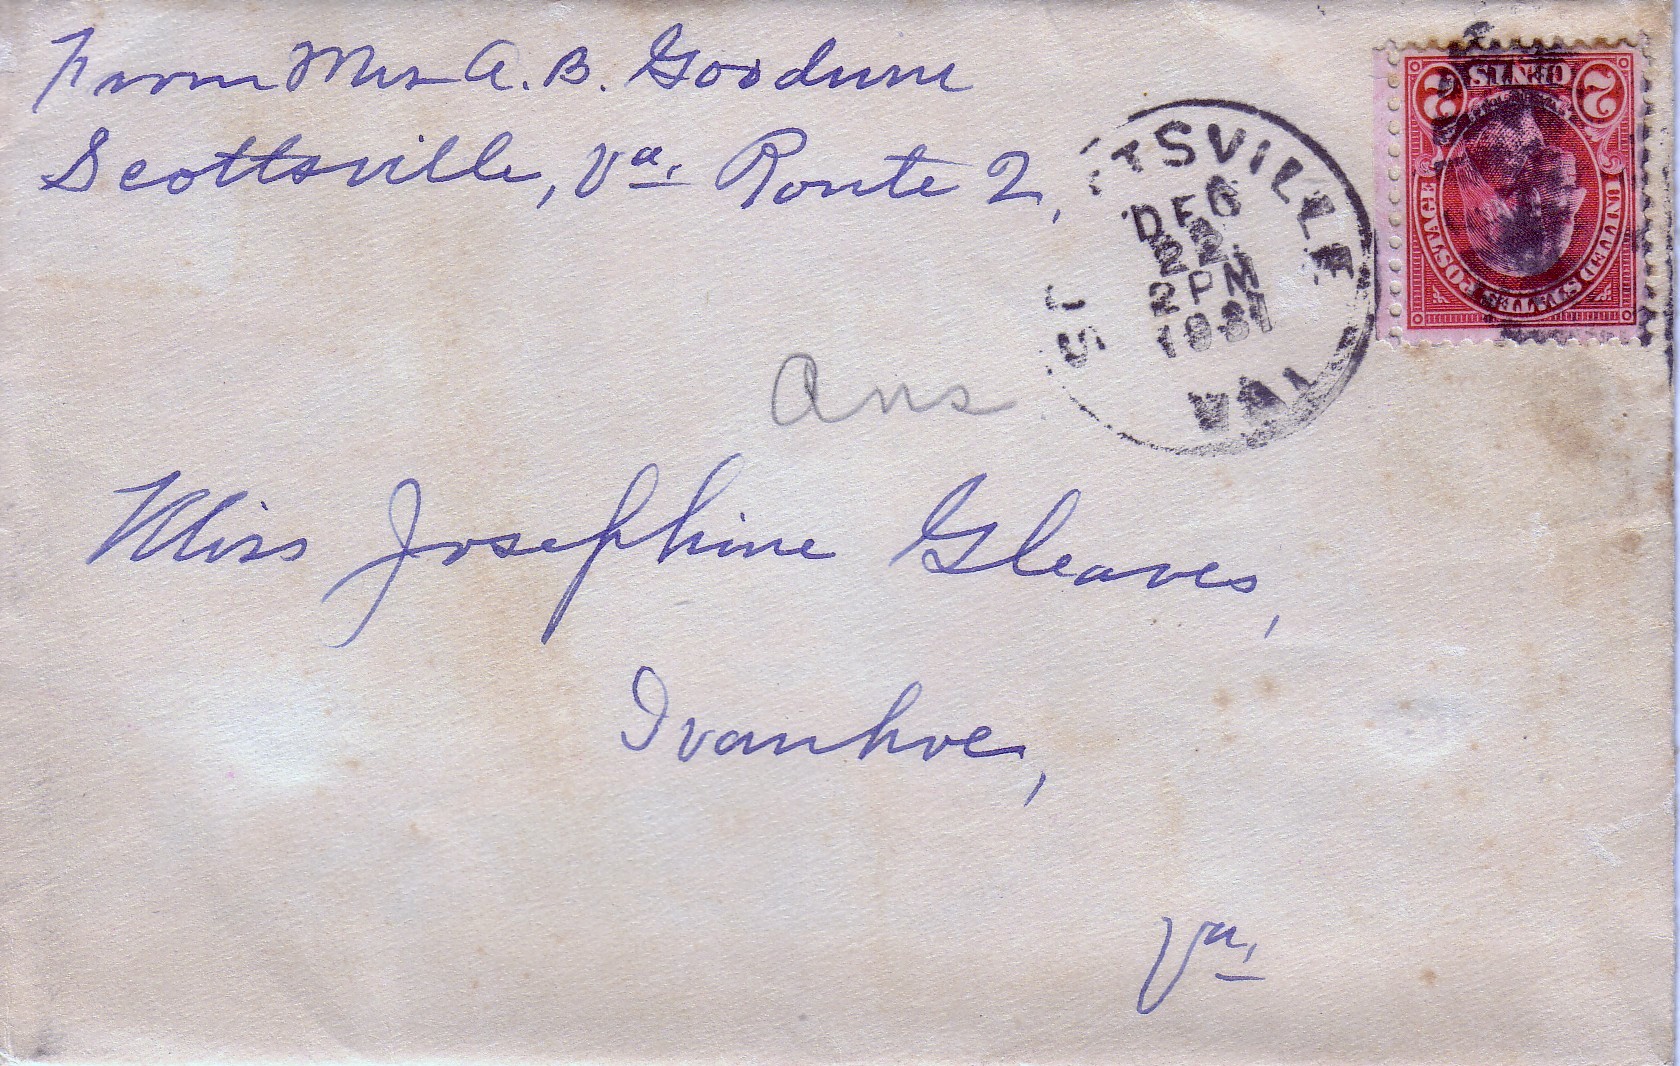 From Mrs A. B. Goodwin
Scottsville, Va. Route 2,
SCOTTSVILLE
DEC
22
2 PM
1931
VA.
2 CENTS 2
UNITED STATES POSTAGE
Ans
Miss Josephine Gleaves,
Ivanhoe,
Va.